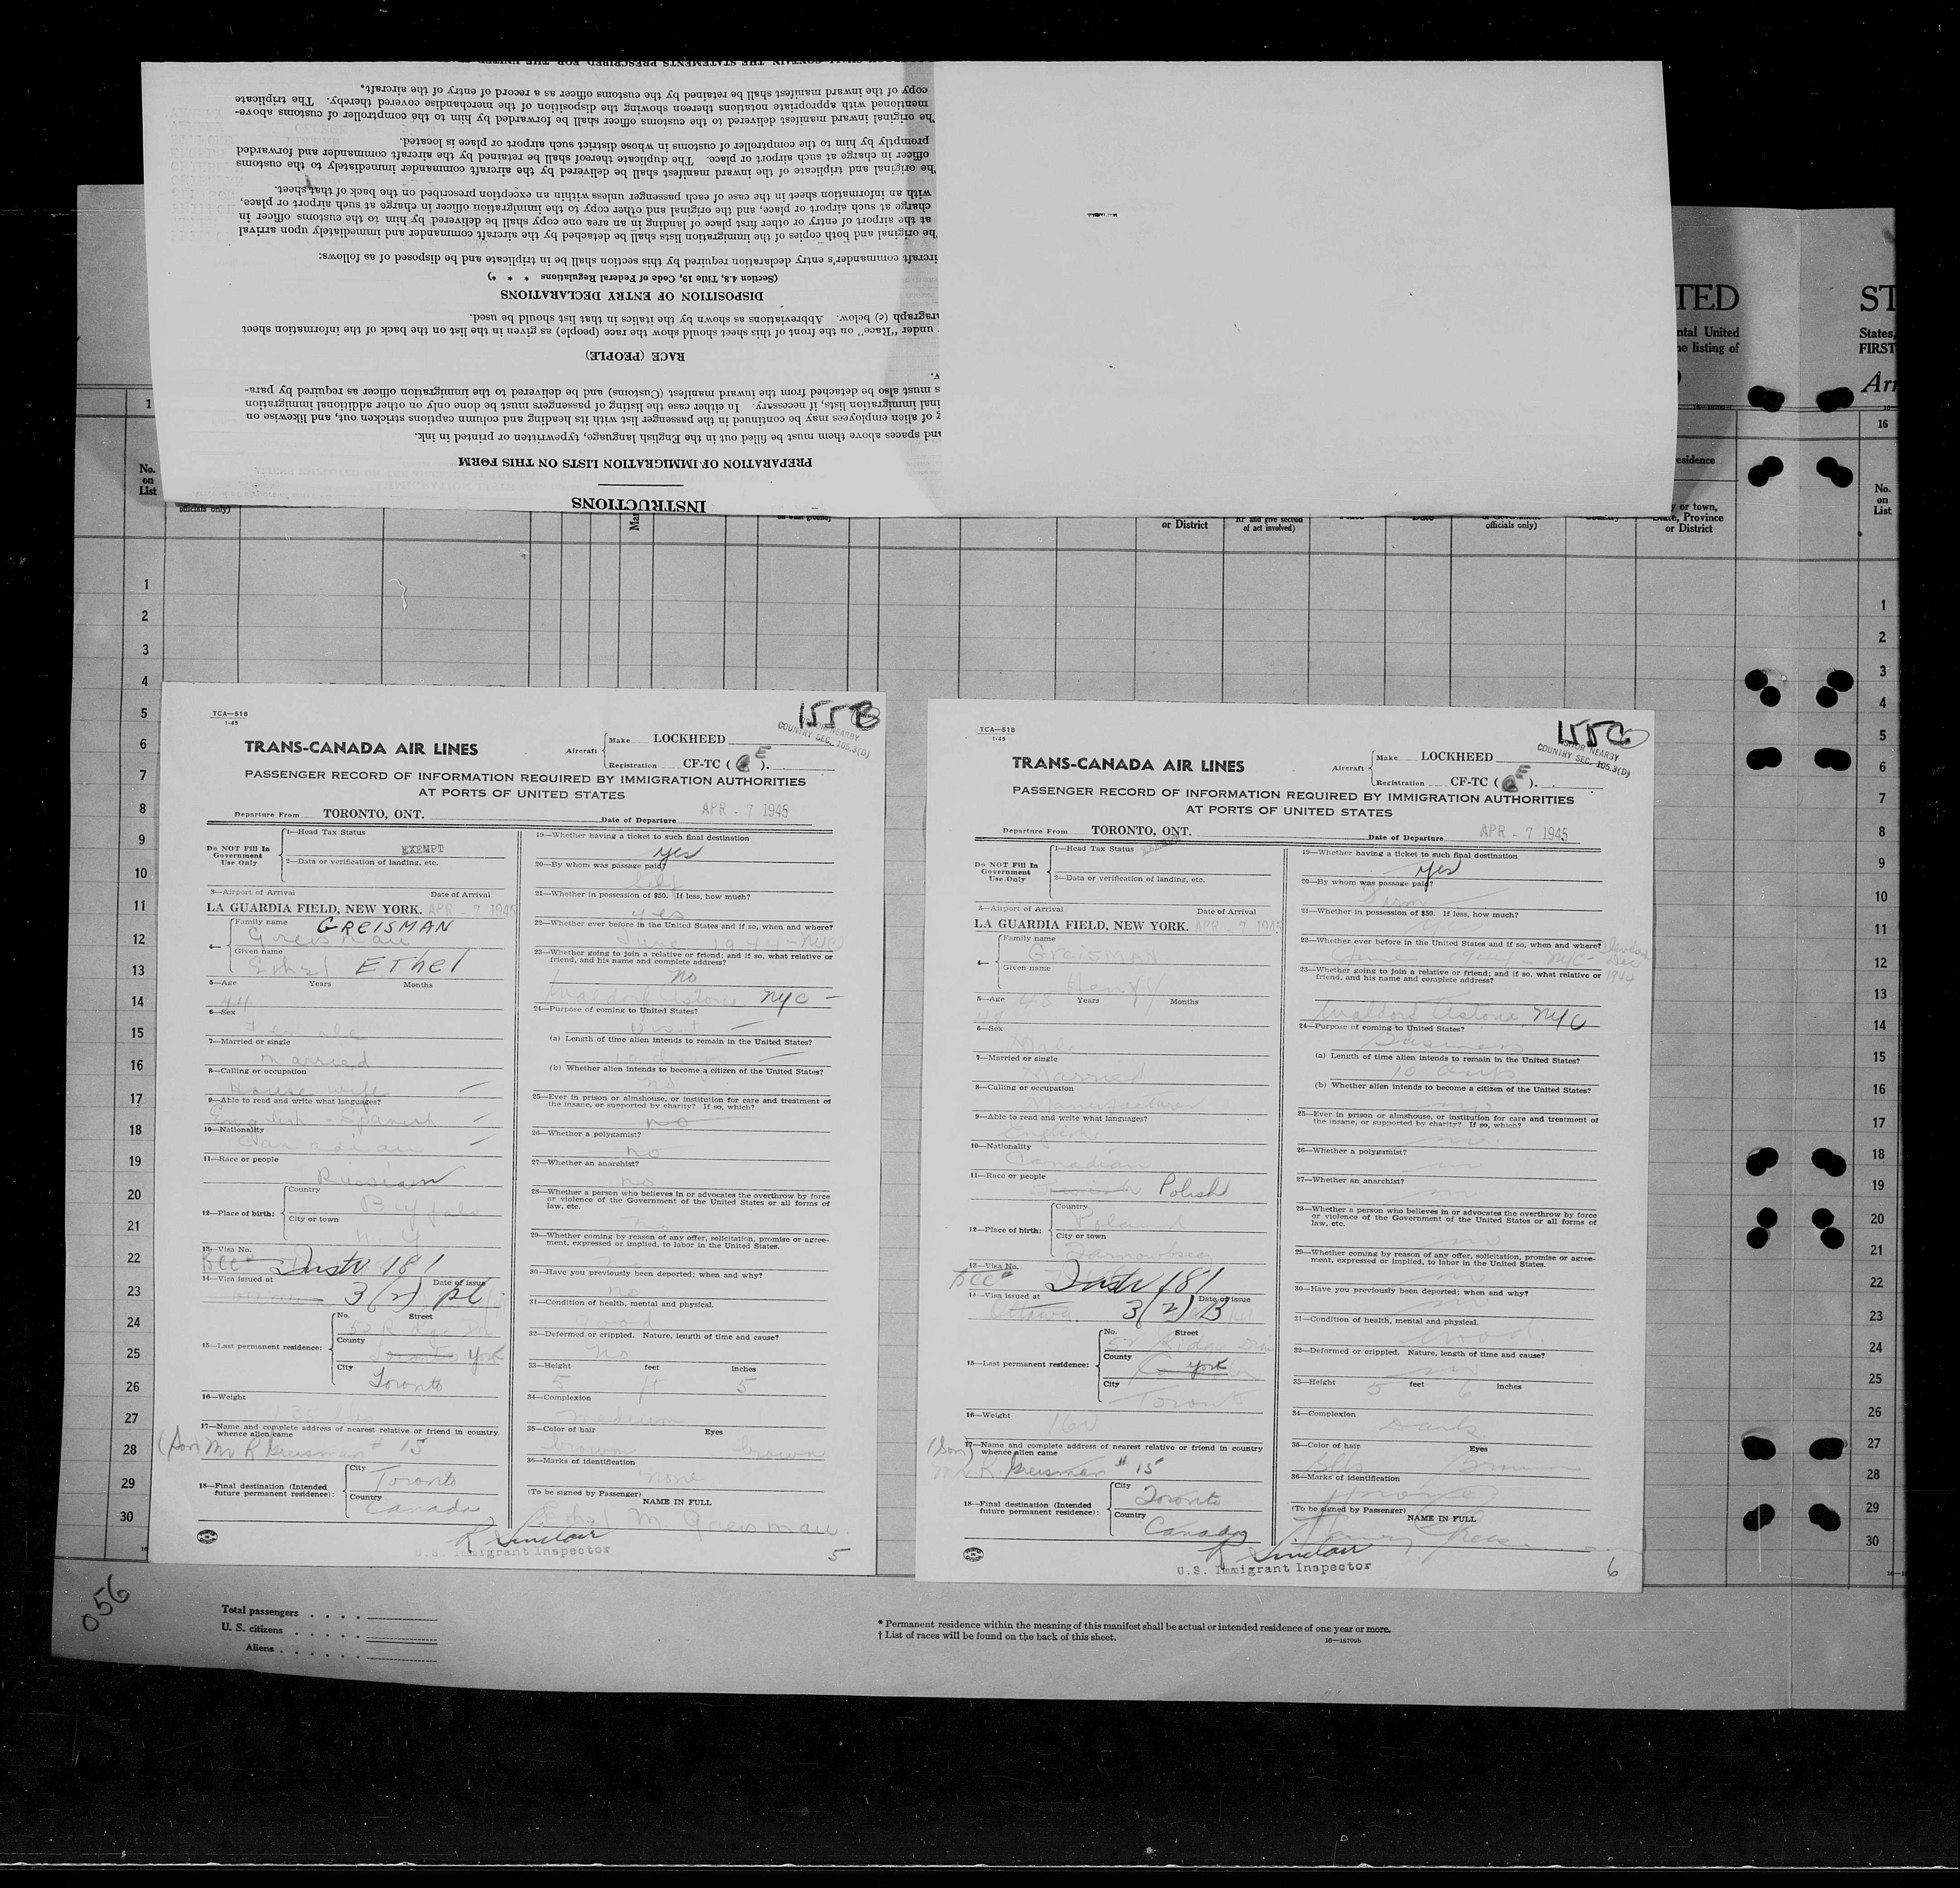 INSTRUCTIONS
PREPARATION OF IMMIGRATION LISTS ON THIS FORM
and spaces above them must be filled out in the English language, typewritten or printed in ink.
of alien employees may be continued in the passenger list with its heading and column captions stricken out, and likewise on
inal immigration lists, if necessary. In either case the listing of passengers must be done only on other additional immigration
s must also be detached from the inward manifest (Customs) and be delivered to the immigration officer as required by para-
RACE (PEOPLE)
under "Race" on the front of this sheet should show the race (people) as given in the list on the back of the information sheet
aragraph (c) below. Abbreviations as shown by the italics in that list should be used.
DISPOSITION OF ENTRY DECLARATIONS
(Section 4.8, Title 19, Code of Federal Regulations * * *)
ircraft commander's entry declaration required by this section shall be in triplicate and be disposed of as follows:
he original and both copies of the immigration lists shall be detached by the aircraft commander and immediately upon arrival
at the airport of entry or other first place of landing in an area one copy shall be delivered by him to the customs officer in
charge at such airport or place, and the original and other copy to the immigration officer in charge at such airport or place,
with an information sheet in the case of each passenger unless within an exception prescribed on the back of that sheet.
he original and triplicate of the inward manifest shall be delivered by the aircraft commander immediately to the customs
officer in charge at such airport or place. The duplicate thereof shall be retained by the aircraft commander and forwarded
promptly by him to the comptroller of customs in whose district such airport or place is located.
The original inward manifest delivered to the customs officer shall be forwarded by him to the comptroller of customs above-
mentioned with appropriate notations thereon showing the disposition of the merchandise covered thereby. The triplicate
copy of the inward manifest shall be retained by the customs officer as a record of entry of the aircraft.
SHALL CONTAIN THE STATEMENTS PRESCRIBED FOR THE UNITED
TED
ntal United
e listing of
ST
States,
FIRST
1
No.
on
List
officials only)
or District
and give section
of act involved)
officials only)
esidence
y or town,
State, Province
or District
16
No.
on
List
1
2
3
4
5
6
7
8
9
10
11
12
13
14
15
16
17
18
19
20
21
22
23
24
25
26
27
28
29
30
TCA—518
1-45
155B
COUNTRY SEC. 105.3(D)
TRANS-CANADA AIR LINES
Aircraft
Make LOCKHEED
Registration CF-TC ( E ).
PASSENGER RECORD OF INFORMATION REQUIRED BY IMMIGRATION AUTHORITIES
AT PORTS OF UNITED STATES
Departure From TORONTO, ONT. Date of Departure APR - 7 1945
Do NOT Fill In
Government
Use Only
1—Head Tax Status
EXEMPT
2—Data or verification of landing, etc.
3—Airport of Arrival Date of Arrival
LA GUARDIA FIELD, NEW YORK. APR - 7 1945
4— Family name GREISMAN
Greisman
Given name
Ethel ETHel
5—Age Years Months
44
6—Sex
Female
7—Married or single
Married
8—Calling or occupation
House wife
9—Able to read and write what languages?
English Spanish
10—Nationality
Canadian
11—Race or people
Russian
12—Place of birth:
Country
Buffalo
City or town
N Y
13—Visa No.
BCC# Instr 181
14—Visa issued at Date of issue
3(2) pl
15—Last permanent residence:
No. Street
53 Ridge Dr
County
Toronto York
City
Toronto
16—Weight
17—Name and complete address of nearest relative or friend in country
whence alien came
(Son) Mr R Greisman # 15
18—Final destination (Intended
future permanent residence):
City
Toronto
Country
Canada
19—Whether having a ticket to such final destination
yes
20—By whom was passage paid?
Self
21—Whether in possession of $50. If less, how much?
yes
22—Whether ever before in the United States and if so, when and where?
June 1944 - NYC
23—Whether going to join a relative or friend; and if so, what relative or
friend, and his name and complete address?
no
Waldorf Astoria NYC -
24—Purpose of coming to United States?
Visit
(a) Length of time alien intends to remain in the United States?
10 days
(b) Whether alien intends to become a citizen of the United States?
no
25—Ever in prison or almshouse, or institution for care and treatment of
the insane, or supported by charity? If so, which?
no
26—Whether a polygamist?
no
27—Whether an anarchist?
no
28—Whether a person who believes in or advocates the overthrow by force
or violence of the Government of the United States or all forms of
law, etc.
no
29—Whether coming by reason of any offer, solicitation, promise or agree-
ment, expressed or implied, to labor in the United States.
no
30—Have you previously been deported; when and why?
no
31—Condition of health, mental and physical.
Good
32—Deformed or crippled. Nature, length of time and cause?
no
33—Height feet inches
5 ft 5
34—Complexion
medium
35—Color of hair Eyes
brown brown
36—Marks of identification
none
(To be signed by Passenger) NAME IN FULL
Ethel M Greisman
R Sinclair
U.S. Immigrant Inspector
5
TCA—518
1-45
155C
VISITOR NEARBY
COUNTRY SEC. 105.3(D)
TRANS-CANADA AIR LINES
Aircraft
Make LOCKHEED
Registration CF-TC ( E ).
PASSENGER RECORD OF INFORMATION REQUIRED BY IMMIGRATION AUTHORITIES
AT PORTS OF UNITED STATES
Departure From TORONTO, ONT. Date of Departure APR - 7 1945
Do NOT Fill In
Government
Use Only
1—Head Tax Status
2—Data or verification of landing, etc.
3—Airport of Arrival Date of Arrival
LA GUARDIA FIELD, NEW YORK. APR - 7 1945
4— Family name
Greisman
Given name
Henry
5—Age 48 Years Months
48
6—Sex
Male
7—Married or single
Married
8—Calling or occupation
Manufacturer
9—Able to read and write what languages?
English
10—Nationality
Canadian
11—Race or people
Polish
12—Place of birth:
Country
Poland
City or town
13—Visa No.
BCC# Instr 181
14—Visa issued at Date of issue
Ottawa. 3(2)B
15—Last permanent residence:
No. Street
53 Ridge Drive
County
York
City
Toronto
16—Weight 160
17—Name and complete address of nearest relative or friend in country
whence alien came
(Son)
Mr R Greisman # 15
18—Final destination (Intended
future permanent residence):
City
Toronto
Country
Canada
19—Whether having a ticket to such final destination
yes
20—By whom was passage paid?
Firm
21—Whether in possession of $50. If less, how much?
22—Whether ever before in the United States and if so, when and where? Cleveland
June 1944 - NYC - Dec
23—Whether going to join a relative or friend; and if so, what relative or 1944
friend, and his name and complete address?
Waldorf Astoria NYC
24—Purpose of coming to United States?
Business
(a) Length of time alien intends to remain in the United States?
10 days
(b) Whether alien intends to become a citizen of the United States?
no
25—Ever in prison or almshouse, or institution for care and treatment of
the insane, or supported by charity? If so, which?
no
26—Whether a polygamist?
no
27—Whether an anarchist?
no
28—Whether a person who believes in or advocates the overthrow by force
or violence of the Government of the United States or all forms of
law, etc.
no
29—Whether coming by reason of any offer, solicitation, promise or agree-
ment, expressed or implied, to labor in the United States.
no
30—Have you previously been deported; when and why?
no
31—Condition of health, mental and physical.
Good
32—Deformed or crippled. Nature, length of time and cause?
no
33—Height 5 feet 6 inches
34—Complexion
Dark
35—Color of hair Eyes
Blk Brown
36—Marks of identification
none
(To be signed by Passenger) NAME IN FULL
Henry Greisman
R Sinclair
U.S. Immigrant Inspector
6
1
2
3
4
5
6
7
8
9
10
11
12
13
14
15
16
17
18
19
20
21
22
23
24
25
26
27
28
29
30
056
Total passengers . . . .
U. S. citizens . . . . .
Aliens . . . . . .
* Permanent residence within the meaning of this manifest shall be actual or intended residence of one year or more.
† List of races will be found on the back of this sheet.
16—18709b